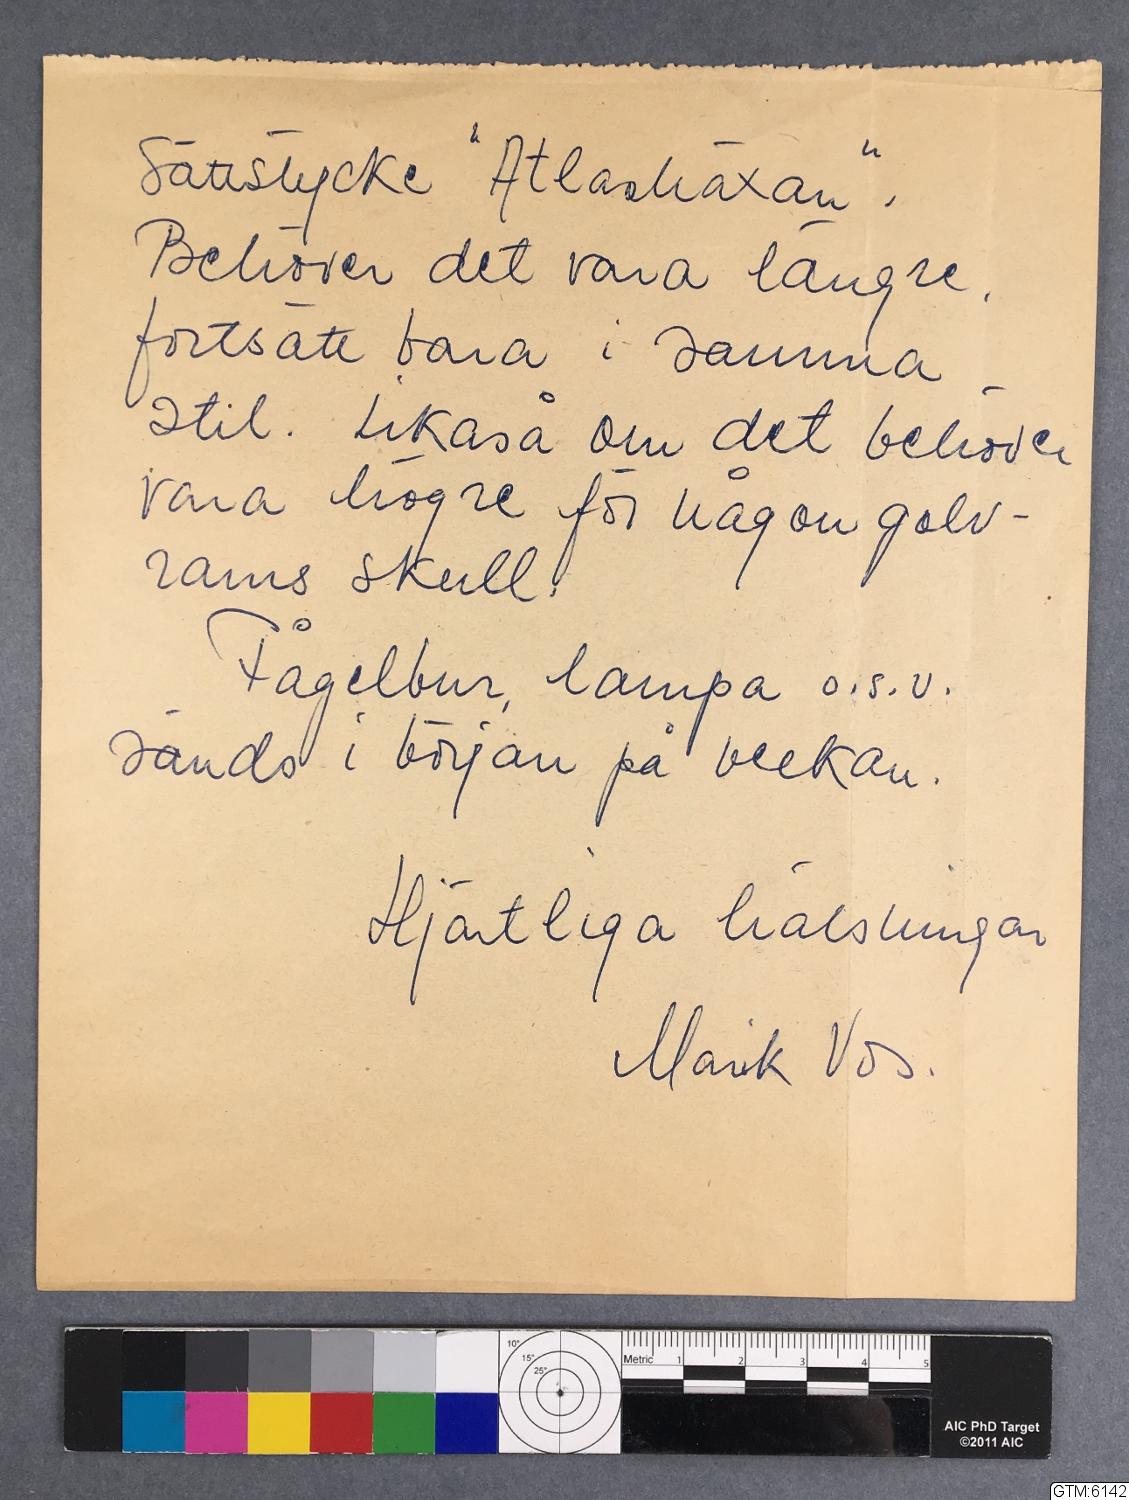 Sättstycke "Atlashäxan".
Behöver det vara längre,
fortsätt bara i samma
stil. Likaså om det behöver
vara högre för någon golv-
rams skull.
Fågelbur, lampa o.s.v.
sänds i början på veckan.
Hjärtliga hälsningar
Marik Vos.
10°
15°
25°
Metric 1 2 3 4 5
AIC PhD Target
©2011 AIC
GTM:6142